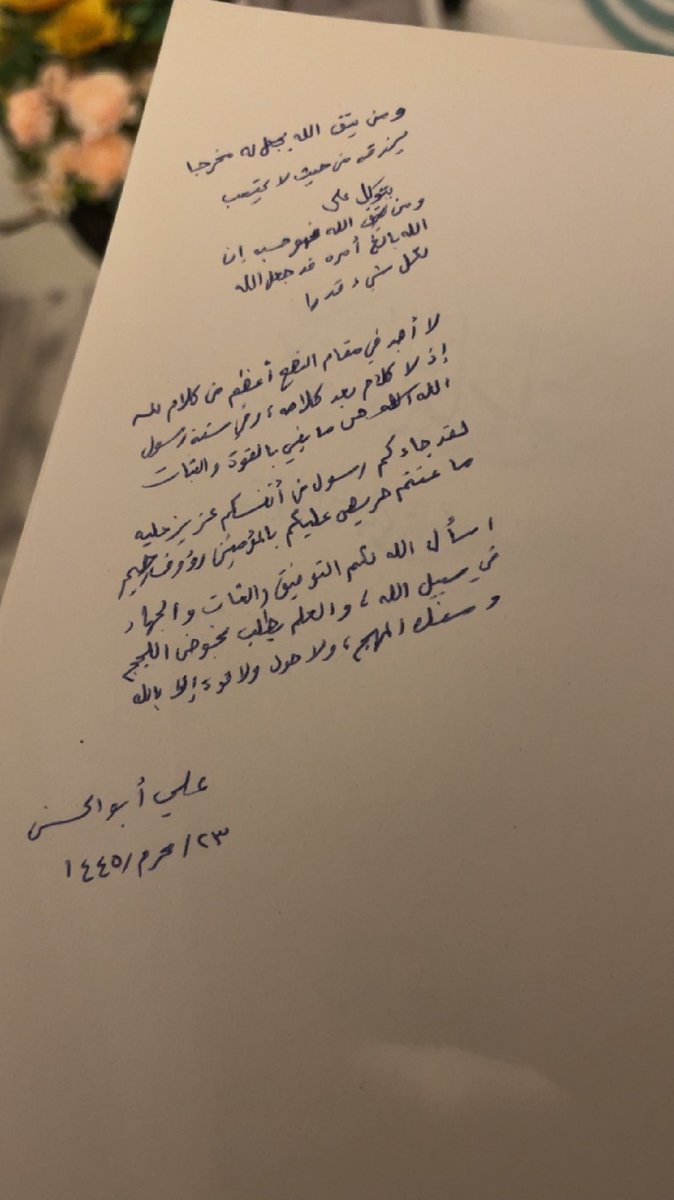 ومن يتق الله يجعل له مخرجا
يرزقه من حيث لا يحتسب
يتوكل على
ومن يتق الله فهو حسبه إن
الله بالغ أمره قد جعل الله
لكل شيء قدرا
لا أجد في مقام النصح أعظم من كلام الله
إذ لا كلام بعد كلامه، وفي سنة رسول
الله من ما يفي بالقوة والثبات
لقد جاءكم رسول من أنفسكم عزيز عليه
ما عنتم حريص عليكم بالمؤمنين رؤوف رحيم
اسأل الله لكم التوفيق والثبات والجهاد
في سبيل الله، والعلم يطلب بخوض اللجج
وسفك المهج، ولا حول ولا قوة إلا بالله
علي أبو الحسن
٢٣/محرم/١٤٤٥